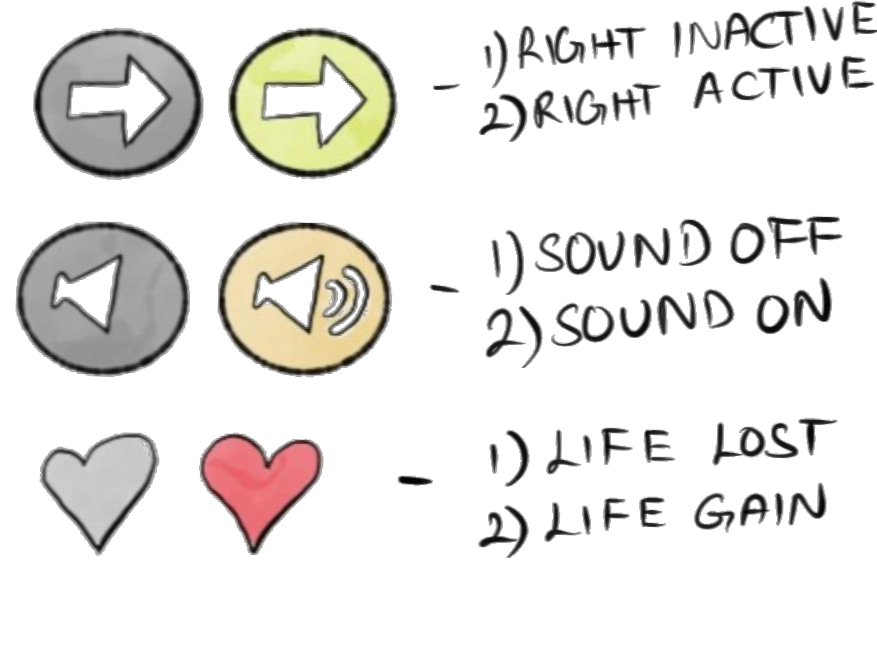 - 1) RIGHT INACTIVE
2) RIGHT ACTIVE
- 1) SOUND OFF
2) SOUND ON
- 1) LIFE LOST
2) LIFE GAIN